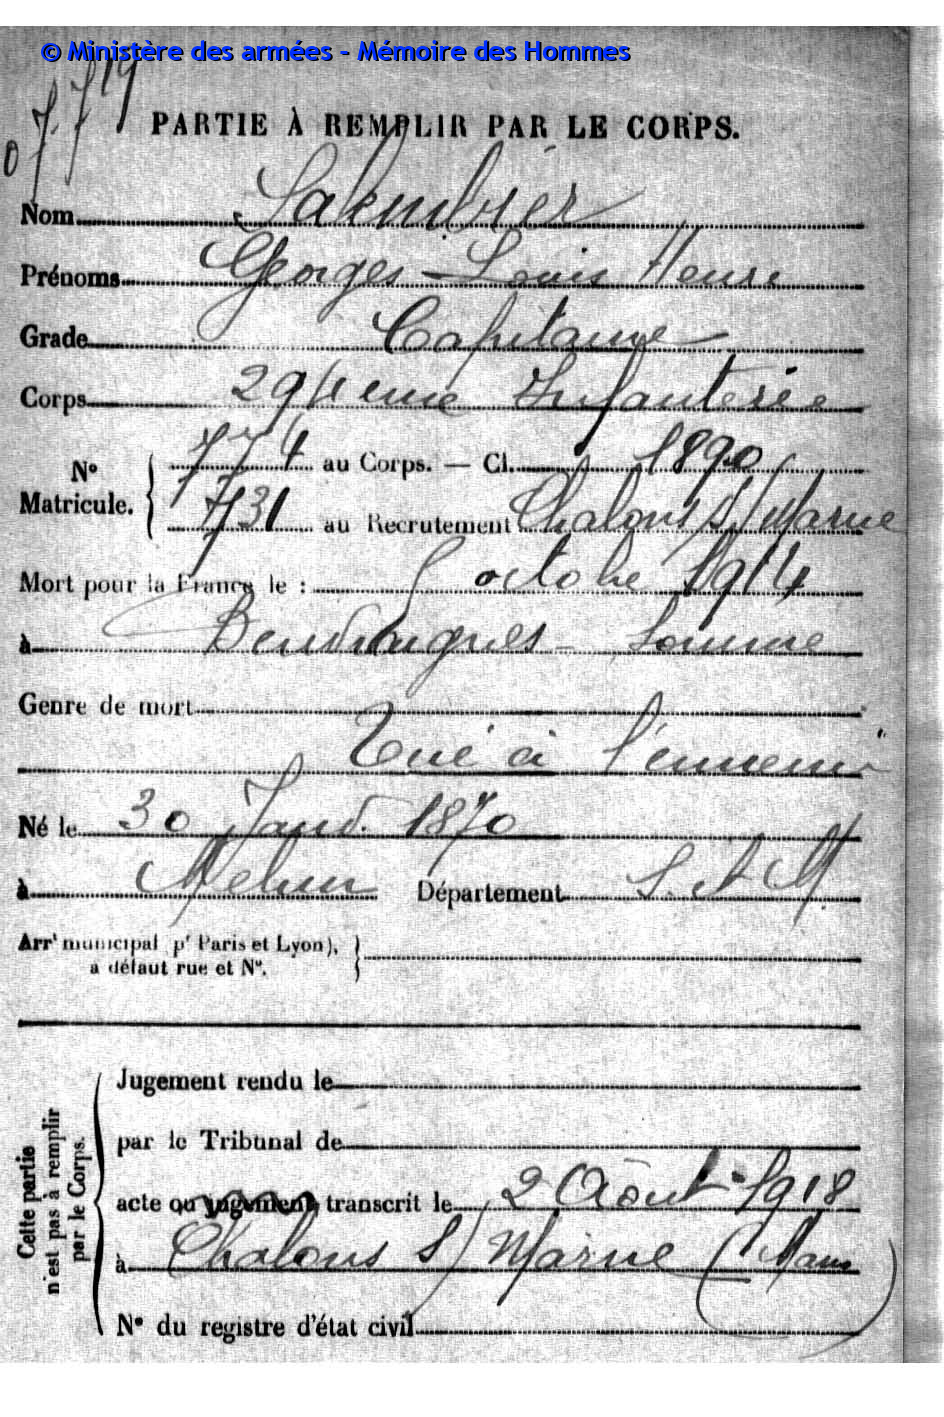 © Ministère des armées - Mémoire des Hommes
PARTIE À REMPLIR PAR LE CORPS.
Nom Salembier
Prénoms Georges - Louis Henri
Grade Capitaine
Corps 294eme Infanterie
N° Matricule. 774 au Corps. — Cl. 1890
731 au Recrutement Chalons s/ Marne
Mort pour la France le : 5 octobre 1914
à - Somme
Genre de mort
Tué à l'ennemi
Né le 30 Janv. 1870
à Melun Département S. et M.
Arrt municipal pr Paris et Lyon),
à défaut rue et N°.
Cette partie n'est pas à remplir par le Corps.
Jugement rendu le
par le Tribunal de
acte ou jugement transcrit le 2 Août 1918
à Chalons S/ Marne (Marne
N° du registre d'état civil